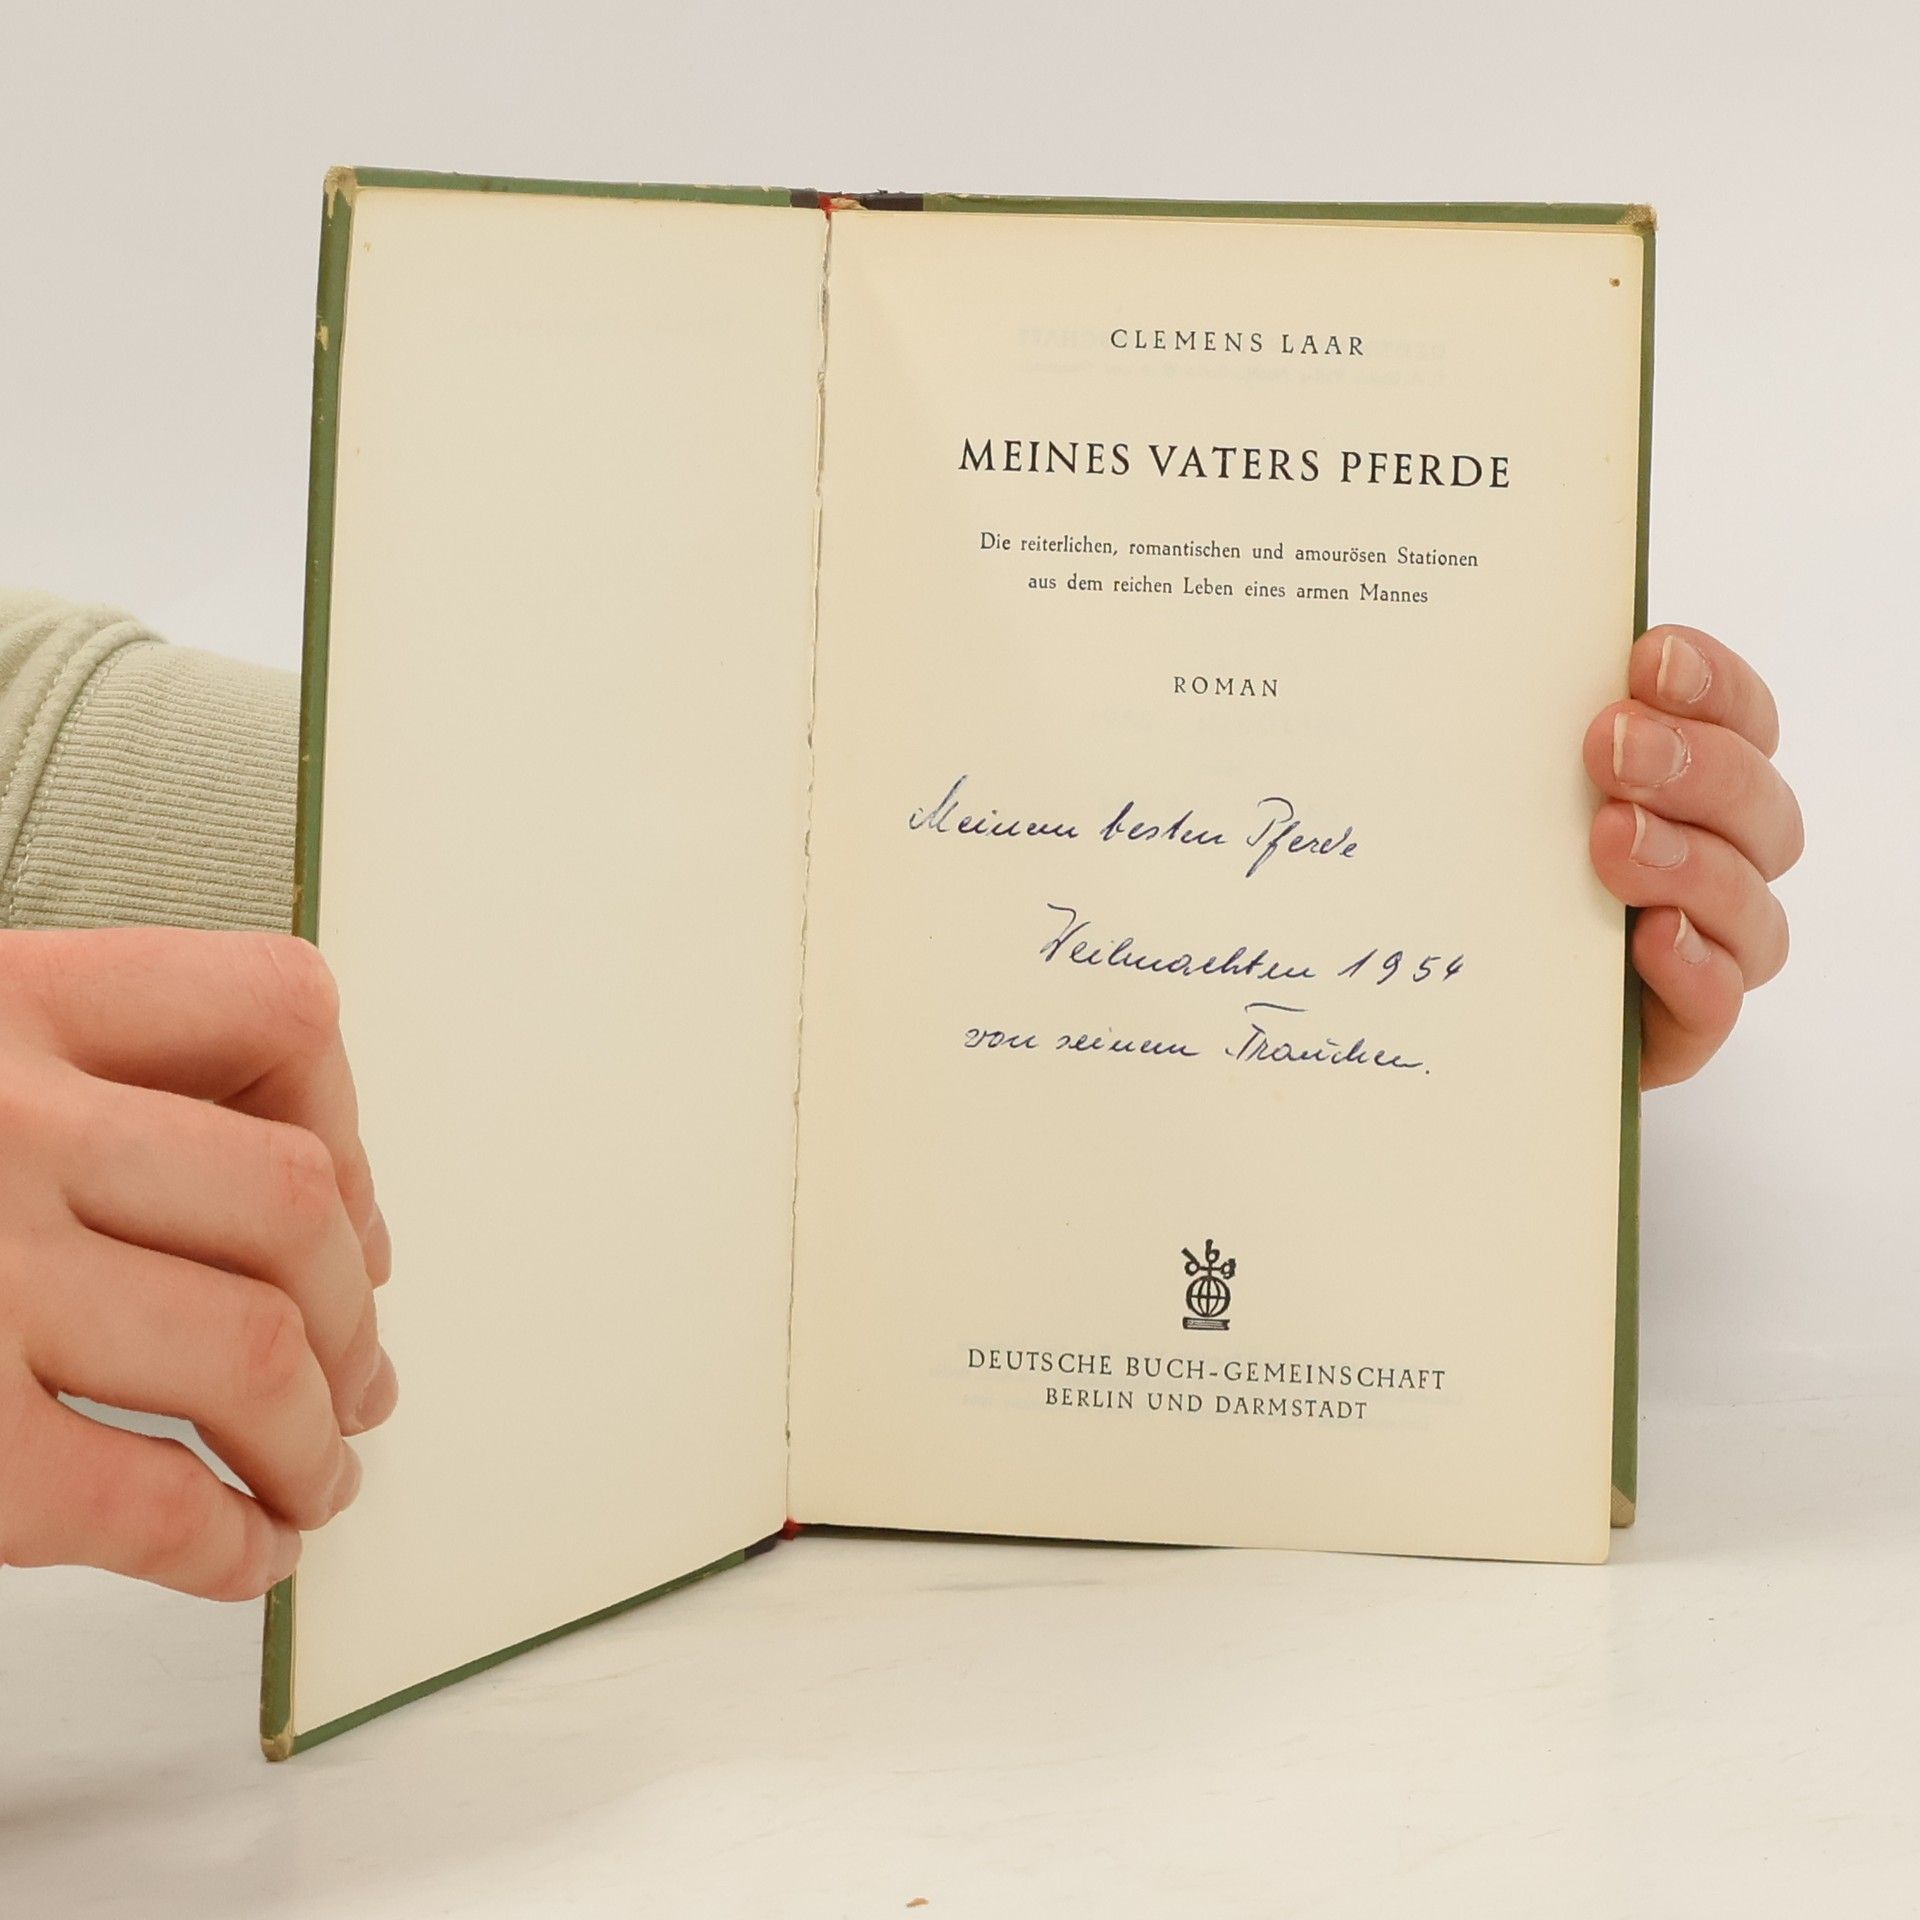 CLEMENS LAAR
MEINES VATERS PFERDE
Die reiterlichen, romantischen und amourösen Stationen
aus dem reichen Leben eines armen Mannes
ROMAN
Meinem besten Pferde
Weihnachten 1954
von seinem
dbg
DEUTSCHE BUCH-GEMEINSCHAFT
BERLIN UND DARMSTADT